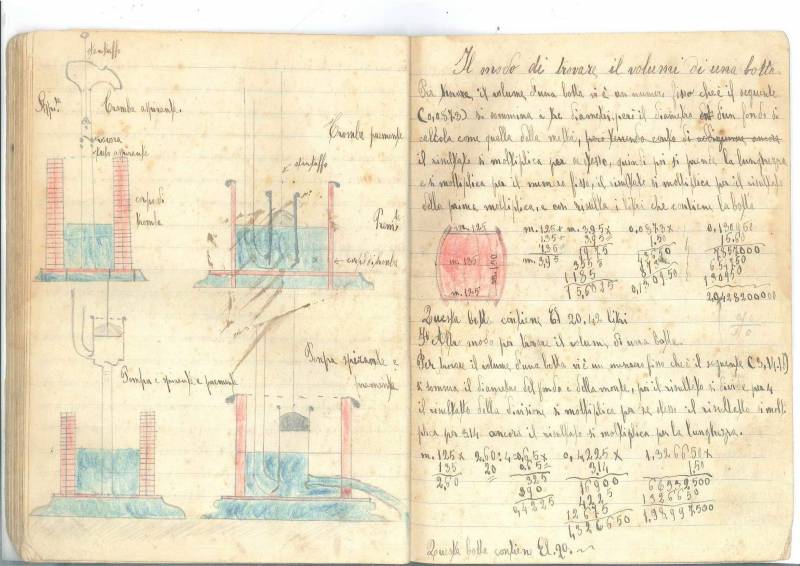 stantuffo
Tromba aspirante.
Tromba premente
tubo aspirante
stantuffo
corpo di
tromba
corpo di tromba
Pompa aspirante e premente
Pompa aspirante e
premente
Il modo di trovare il volumi di una botte
Per trovare il volume d'una botte vi è un numero fisso che è il seguente
(0,0873) si somma i tre diametri, però il diametro d'un fondo si
calcola come quella della metà,
il risultato si moltiplica per se stesso, quindi poi si prende la lunghezza
e si moltiplica per il numero fisso, il risultato si moltiplica per il risultato
della prima moltiplica, e così risulta i litri che contiene la botte
m. 125
m. 135
m. 125
m. 125 × m. 395 × 0,0873 × 0,130950
135 395 1.50
135 1975
m. 395 3555 873
1185 0,130950
15,6025 20428200000
Questa botte contiene El 20,42 litri
Altro modo per trovare il volume di una botte.
Per trovare il volume d'una botte vi è un numero fisso che è il seguente (3,1414)
si somma il diametro del fondo e della metà, poi il risultato si divide per 4
il risultato della divisione si moltiplica per se stesso il risultato si molti
plica per 314 ancora il risultato si moltiplica per la lunghezza.
m. 125 × 2,60 : 4 = 0,65 × 0,4225 × 1,326650 ×
135 20 0,65 314 1,50
2,60 325 16900 66332500
390 4225 1326650
0,4225 12675 1,98997500
1,326650
Questa botte contiene El. 20.